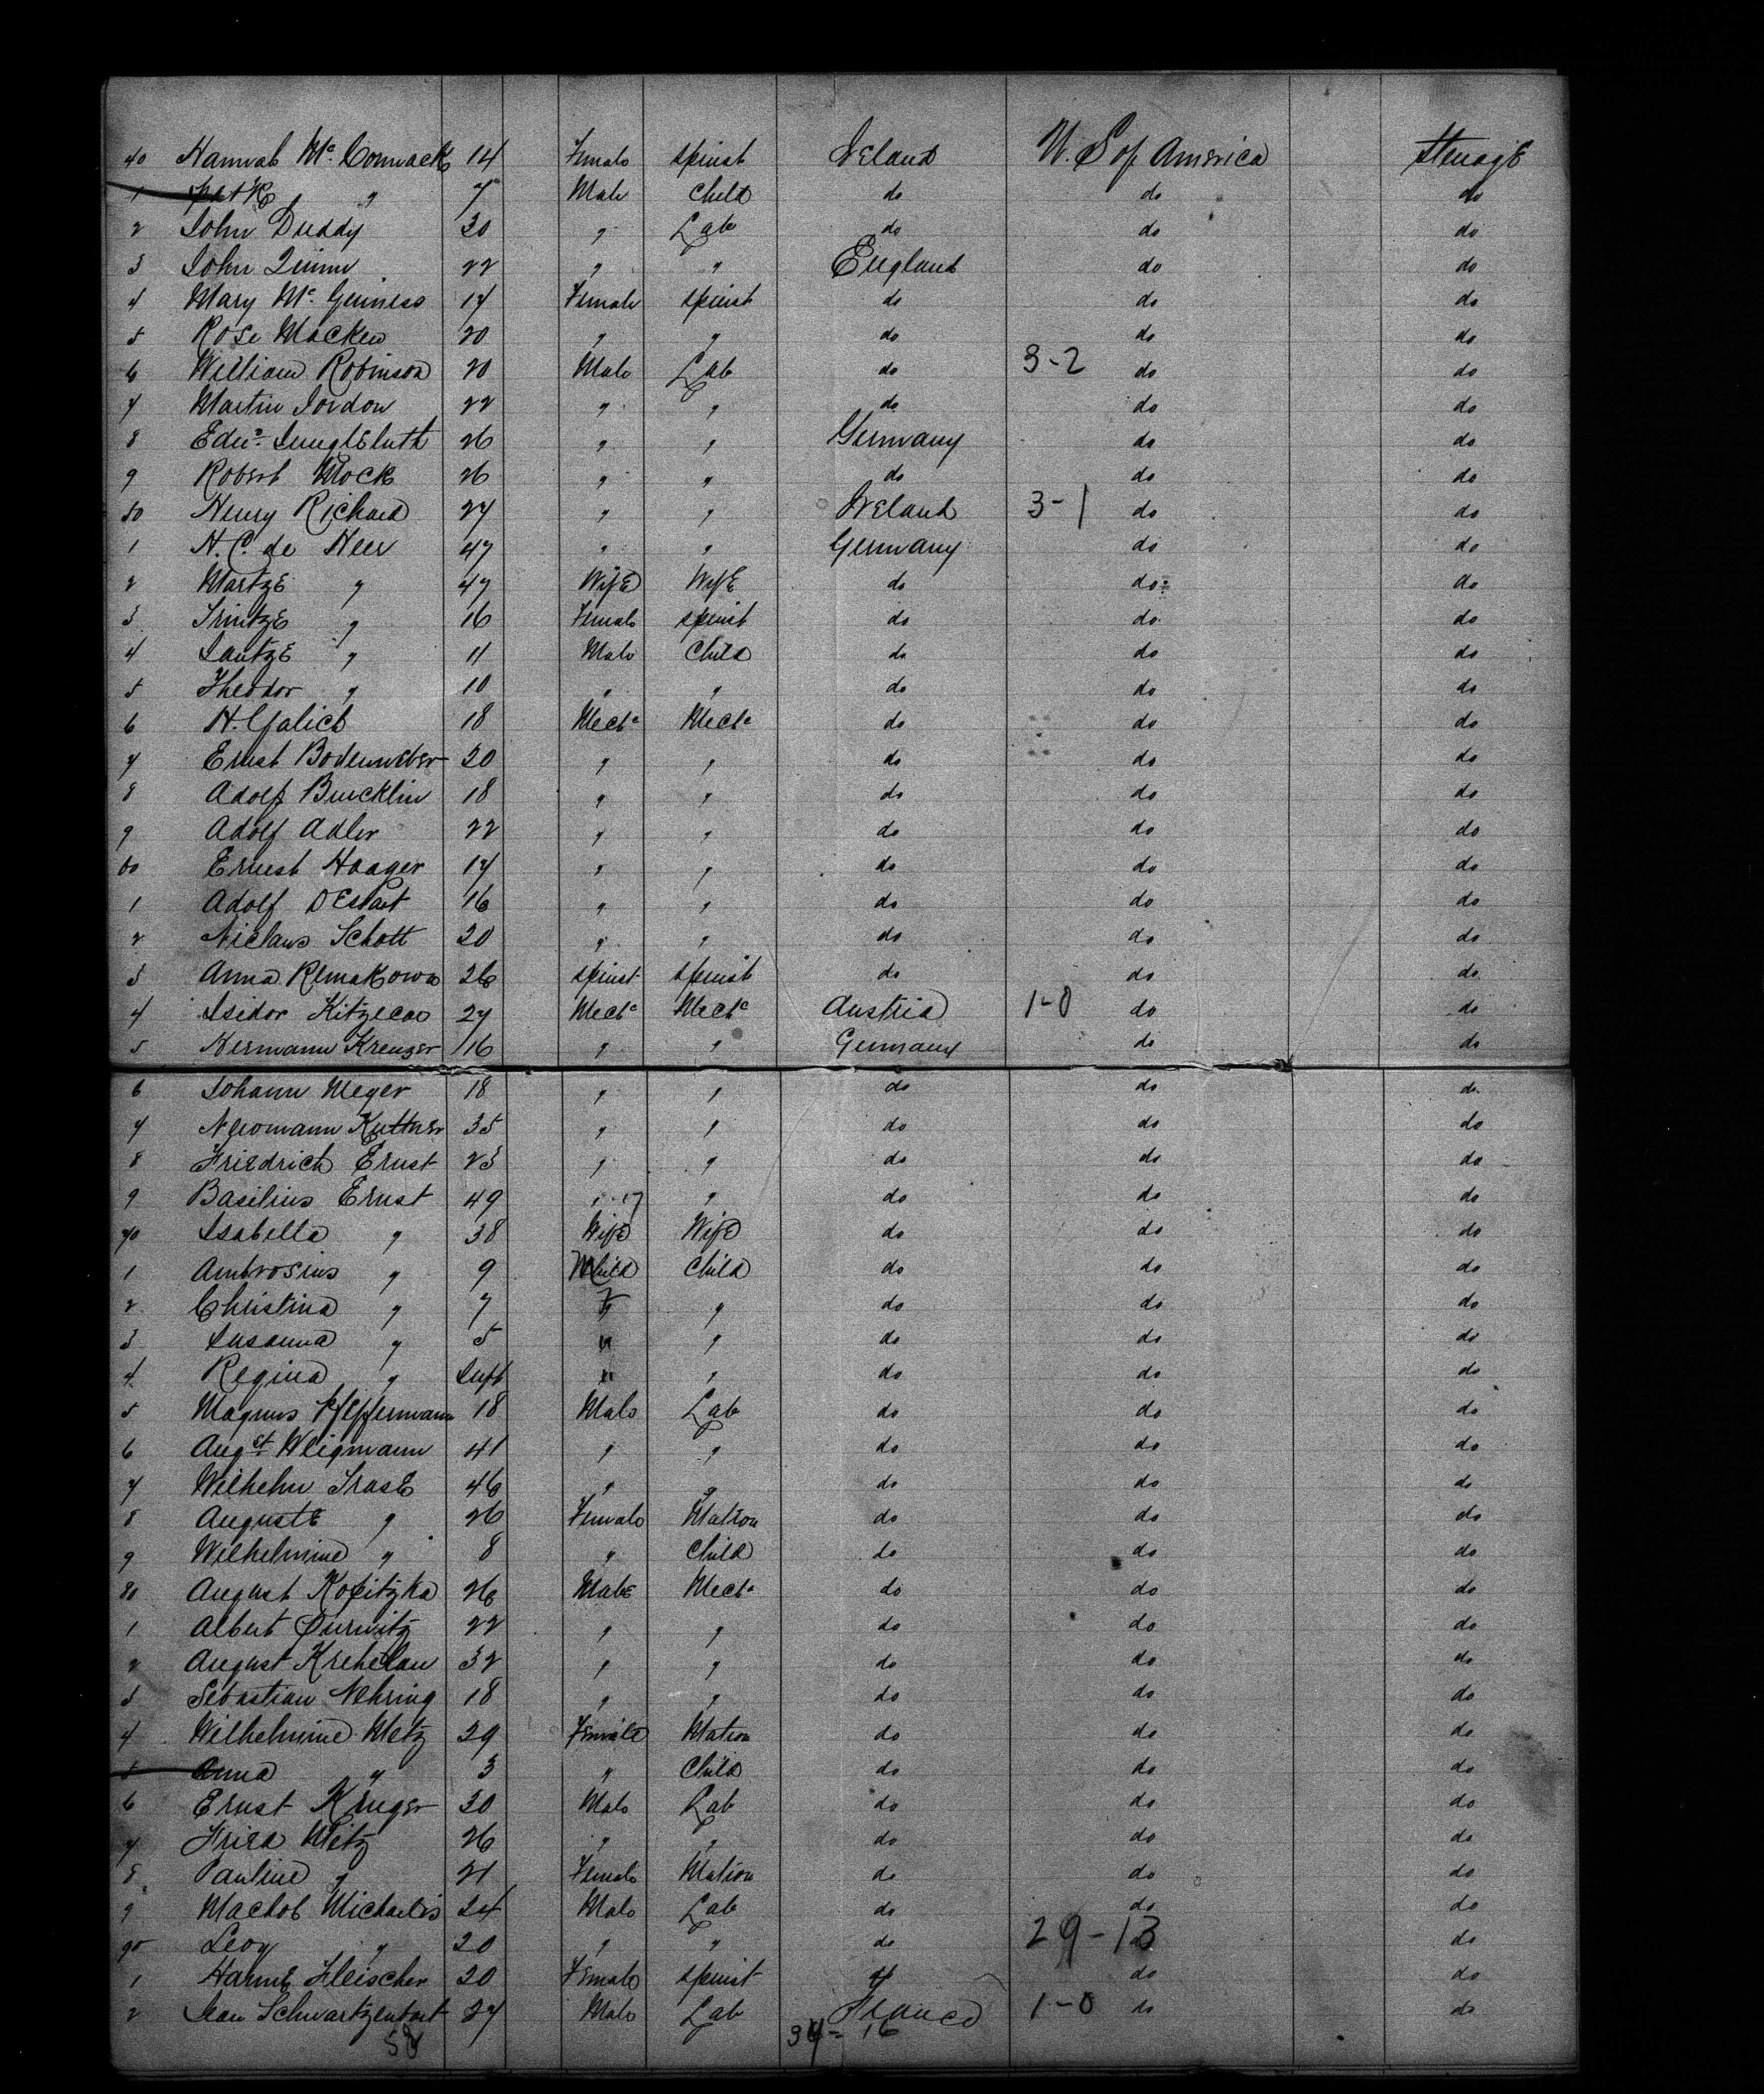 40 Hannah Mc Cormack 14 Female spinst Ireland U. S of America Steuage
1 Patk " 7 Male Child do do do
2 John Duddy 30 " Lab do do do
3 John Quinn 22 " " England do do
4 Mary Mc Guiness 17 Female spinst do do do
5 Rose Macken 20 " " do do do
6 William Robinson 20 Male Lab do 3-2 do do
7 Martin Jordon 22 " " do do do
8 26 " " Germany do do
9 Robert Mock 26 " " do do do
50 Henry Richard 27 " " Ireland 3-1 do do
1 H. C. de Neer 47 " " Germany do do
2 Martze " 47 Wife Wife do do do
3 Trintze " 16 Female spinst do do do
4 Jantze " 11 Male Child do do do
5 Theodor " 10 " " do do do
6 H. Galich 18 Mechc Mechc do do do
7 Ernst Bodenweber 20 " " do do do
8 Adolf Buecklin 18 " " do do do
9 Adolf Adler 22 " " do do do
60 Ernest Haager 17 " " do do do
1 Adolf 16 " " do do do
2 Niclaus Schott 20 " " do do do
3 Anna Remakowa 26 spinst spinst do do do
4 Isidor 27 Mechc Mechc Austria 1-0 do do
5 Hermann Kreuzer 16 " " Germany do do
6 Johann Meyer 18 " " do do do
7 Neromann Kuttner 35 " " do do do
8 Friedrich Ernst 23 " " do do do
9 Basilius Ernst 49 " " do do do
70 Isabella " 38 Wife Wife do do do
1 Ambrosius " 9 Child Child do do do
2 Christina " 7 " " do do do
3 Susanna " 5 " " do do do
4 Regina " Inft " " do do do
5 Magnus Pfeffermann 18 Male Lab do do do
6 Augst Weigmann 41 " " do do do
7 Wilhelm Trase 46 " " do do do
8 Auguste " 26 Female Matron do do do
9 Wilhelmine " 8 " Child do do do
80 August Kopitzka 26 Male Mechc do do do
1 Albert 22 " " do do do
2 August Krehelau 32 " " do do do
3 Sebastian Nehring 18 " " do do do
4 Wilhelmine Metz 29 Female Matron do do do
5 Anna " 3 " Child do do do
6 Ernst Kruger 30 Male Lab do do do
7 Metz 26 " " do do do
8 Pauline " 21 Female Matron do do do
9 Machol Michaelis 24 Male Lab do do do
90 Leoy " 20 " " do 29-13 do do
1 Hanne Fleischer 20 Female spinst do do
2 Jean Schwartzentart 27 Male Lab France 1-0 do do
58 34-16